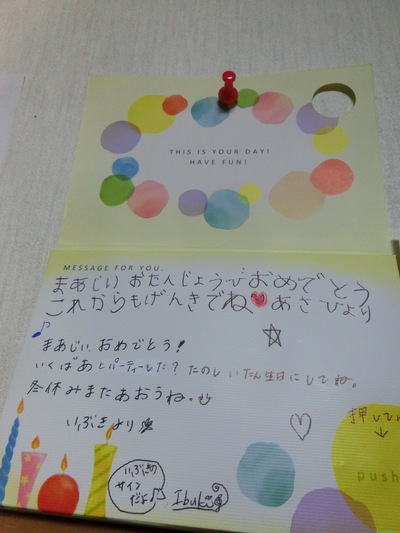 THIS IS YOUR DAY!
HAVE FUN!
MESSAGE FOR YOU.
まあじい おたんじょうびおめでとう
これからもげんきでね あさひより
まあじい、おめでとう!
いくばあとパーティーした?たのしいたん生日にしてね。
冬休みまたあおうね。
いぶきより
押してね
push
いぶきの
サイン
だよ
Ibuki